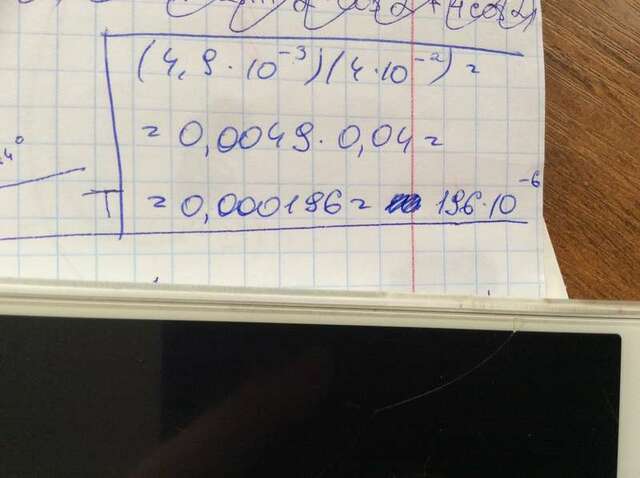 (4,9·10⁻³)(4·10⁻²) =
= 0,0049·0,04 =
,4°
T = 0,000196 = 196·10⁻⁶